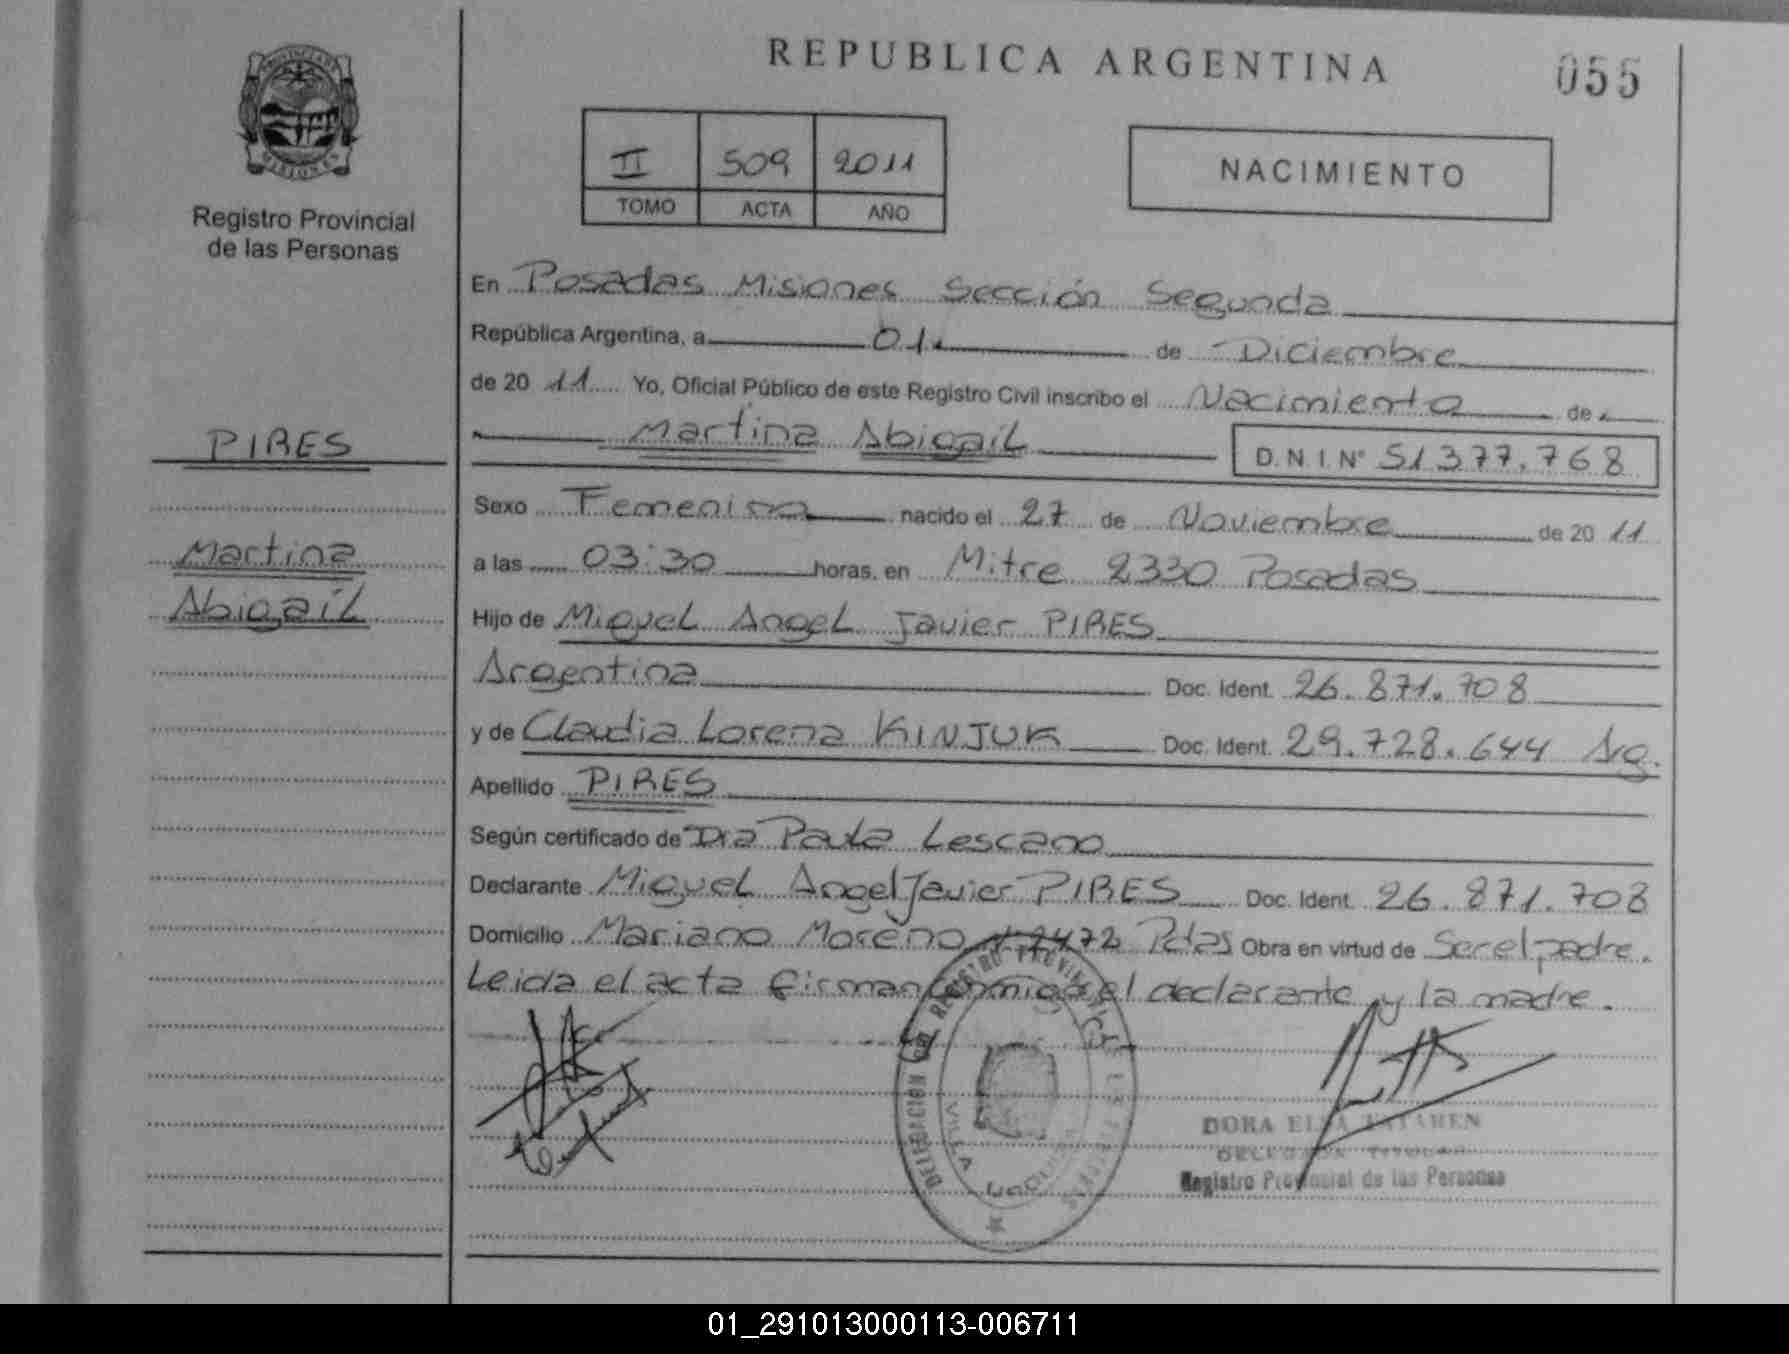 REPUBLICA ARGENTINA
055
PROVINCIA DE
MISIONES
Registro Provincial
de las Personas
II 509 2011
TOMO ACTA AÑO
NACIMIENTO
En Posadas Misiones Sección Segunda
República Argentina, a 01 de Diciembre
de 20 11 Yo, Oficial Público de este Registro Civil inscribo el Nacimiento de
Martina Abigail D.N.I. N° 51377.768
PIRES
Martina
Abigail
Sexo Femenino nacido el 27 de Noviembre de 20 11
a las 03:30 horas, en Mitre 2330 Posadas
Hijo de Miguel Angel Javier PIRES
Argentina Doc. Ident. 26.871.708
y de Claudia Lorena KINJUK Doc. Ident. 29.728.644 Ag.
Apellido PIRES
Según certificado de Dra Paula Lescano
Declarante Miguel Angel Javier PIRES Doc. Ident. 26.871.708
Domicilio Mariano Moreno 2472 Pdas Obra en virtud de Ser el padre.
Leida el acta firman conmigo el declarante y la madre.
DELEGACION DEL REGISTRO PROVINCIAL DE LAS PERSONAS
VILLA URQUIZA
DORA ELSA TATAREN
Registro Provincial de las Personas
01_291013000113-006711